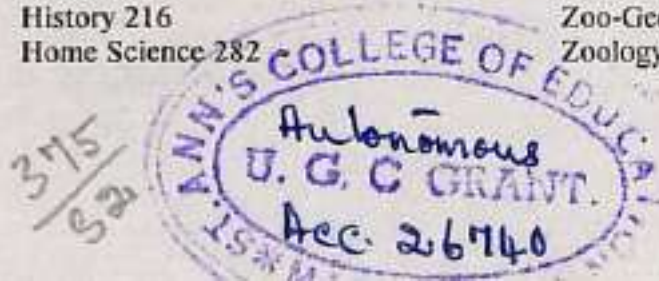 History 216
Home Science 282
Zoo-Geo
Zoology
ST. ANN'S COLLEGE OF EDUCAT
Autonomous
U. G. C GRANT.
Acc. 26740
375
52